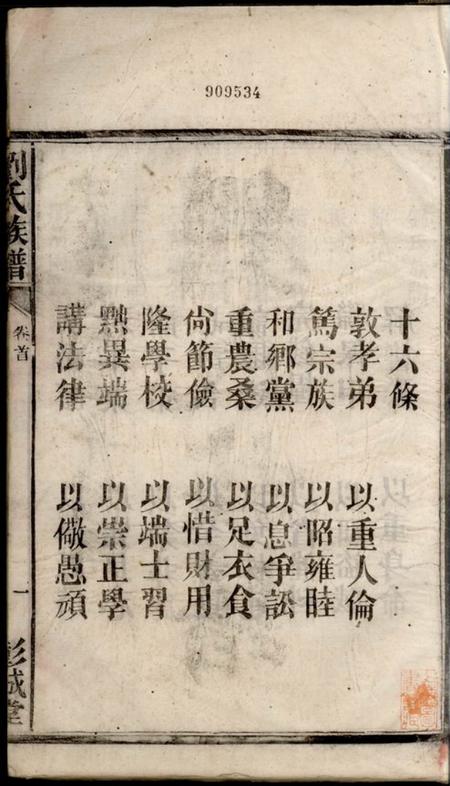 909534
十六條
敦孝弟 以重人倫
篤宗族 以昭雍睦
和鄉黨 以息爭訟
重農桑 以足衣食
尙節儉 以惜財用
隆學校 以端士習
黜異端 以崇正學
講法律 以儆愚頑
劉氏族譜 卷首 一 彭城堂